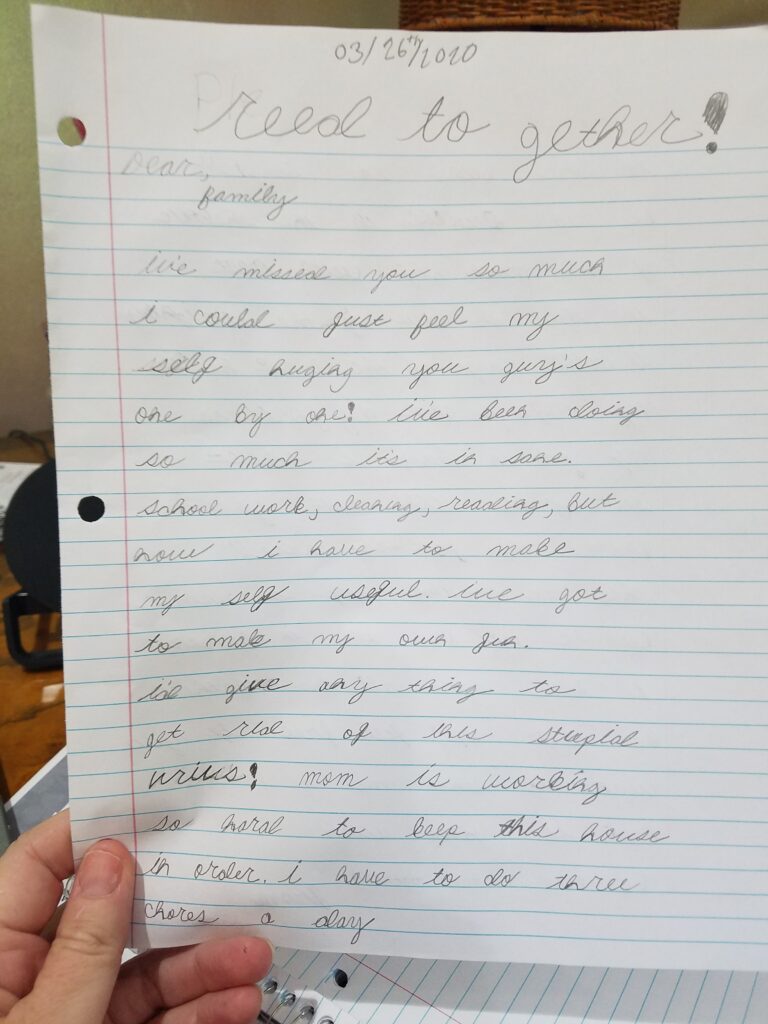 03/26th/2020
reed to gether!
Dear,
family
iv'e missed you so much
i could just feel my
self huging you guy's
one by one! iv'e been doing
so much it's in sane.
school work, cleaning, reading, but
now i have to make
my self useful. ive got
to make my own fun.
i'd give any thing to
get rid of this stupid
virius! mom is working
so hard to keep this house
in order. i have to do three
chores a day